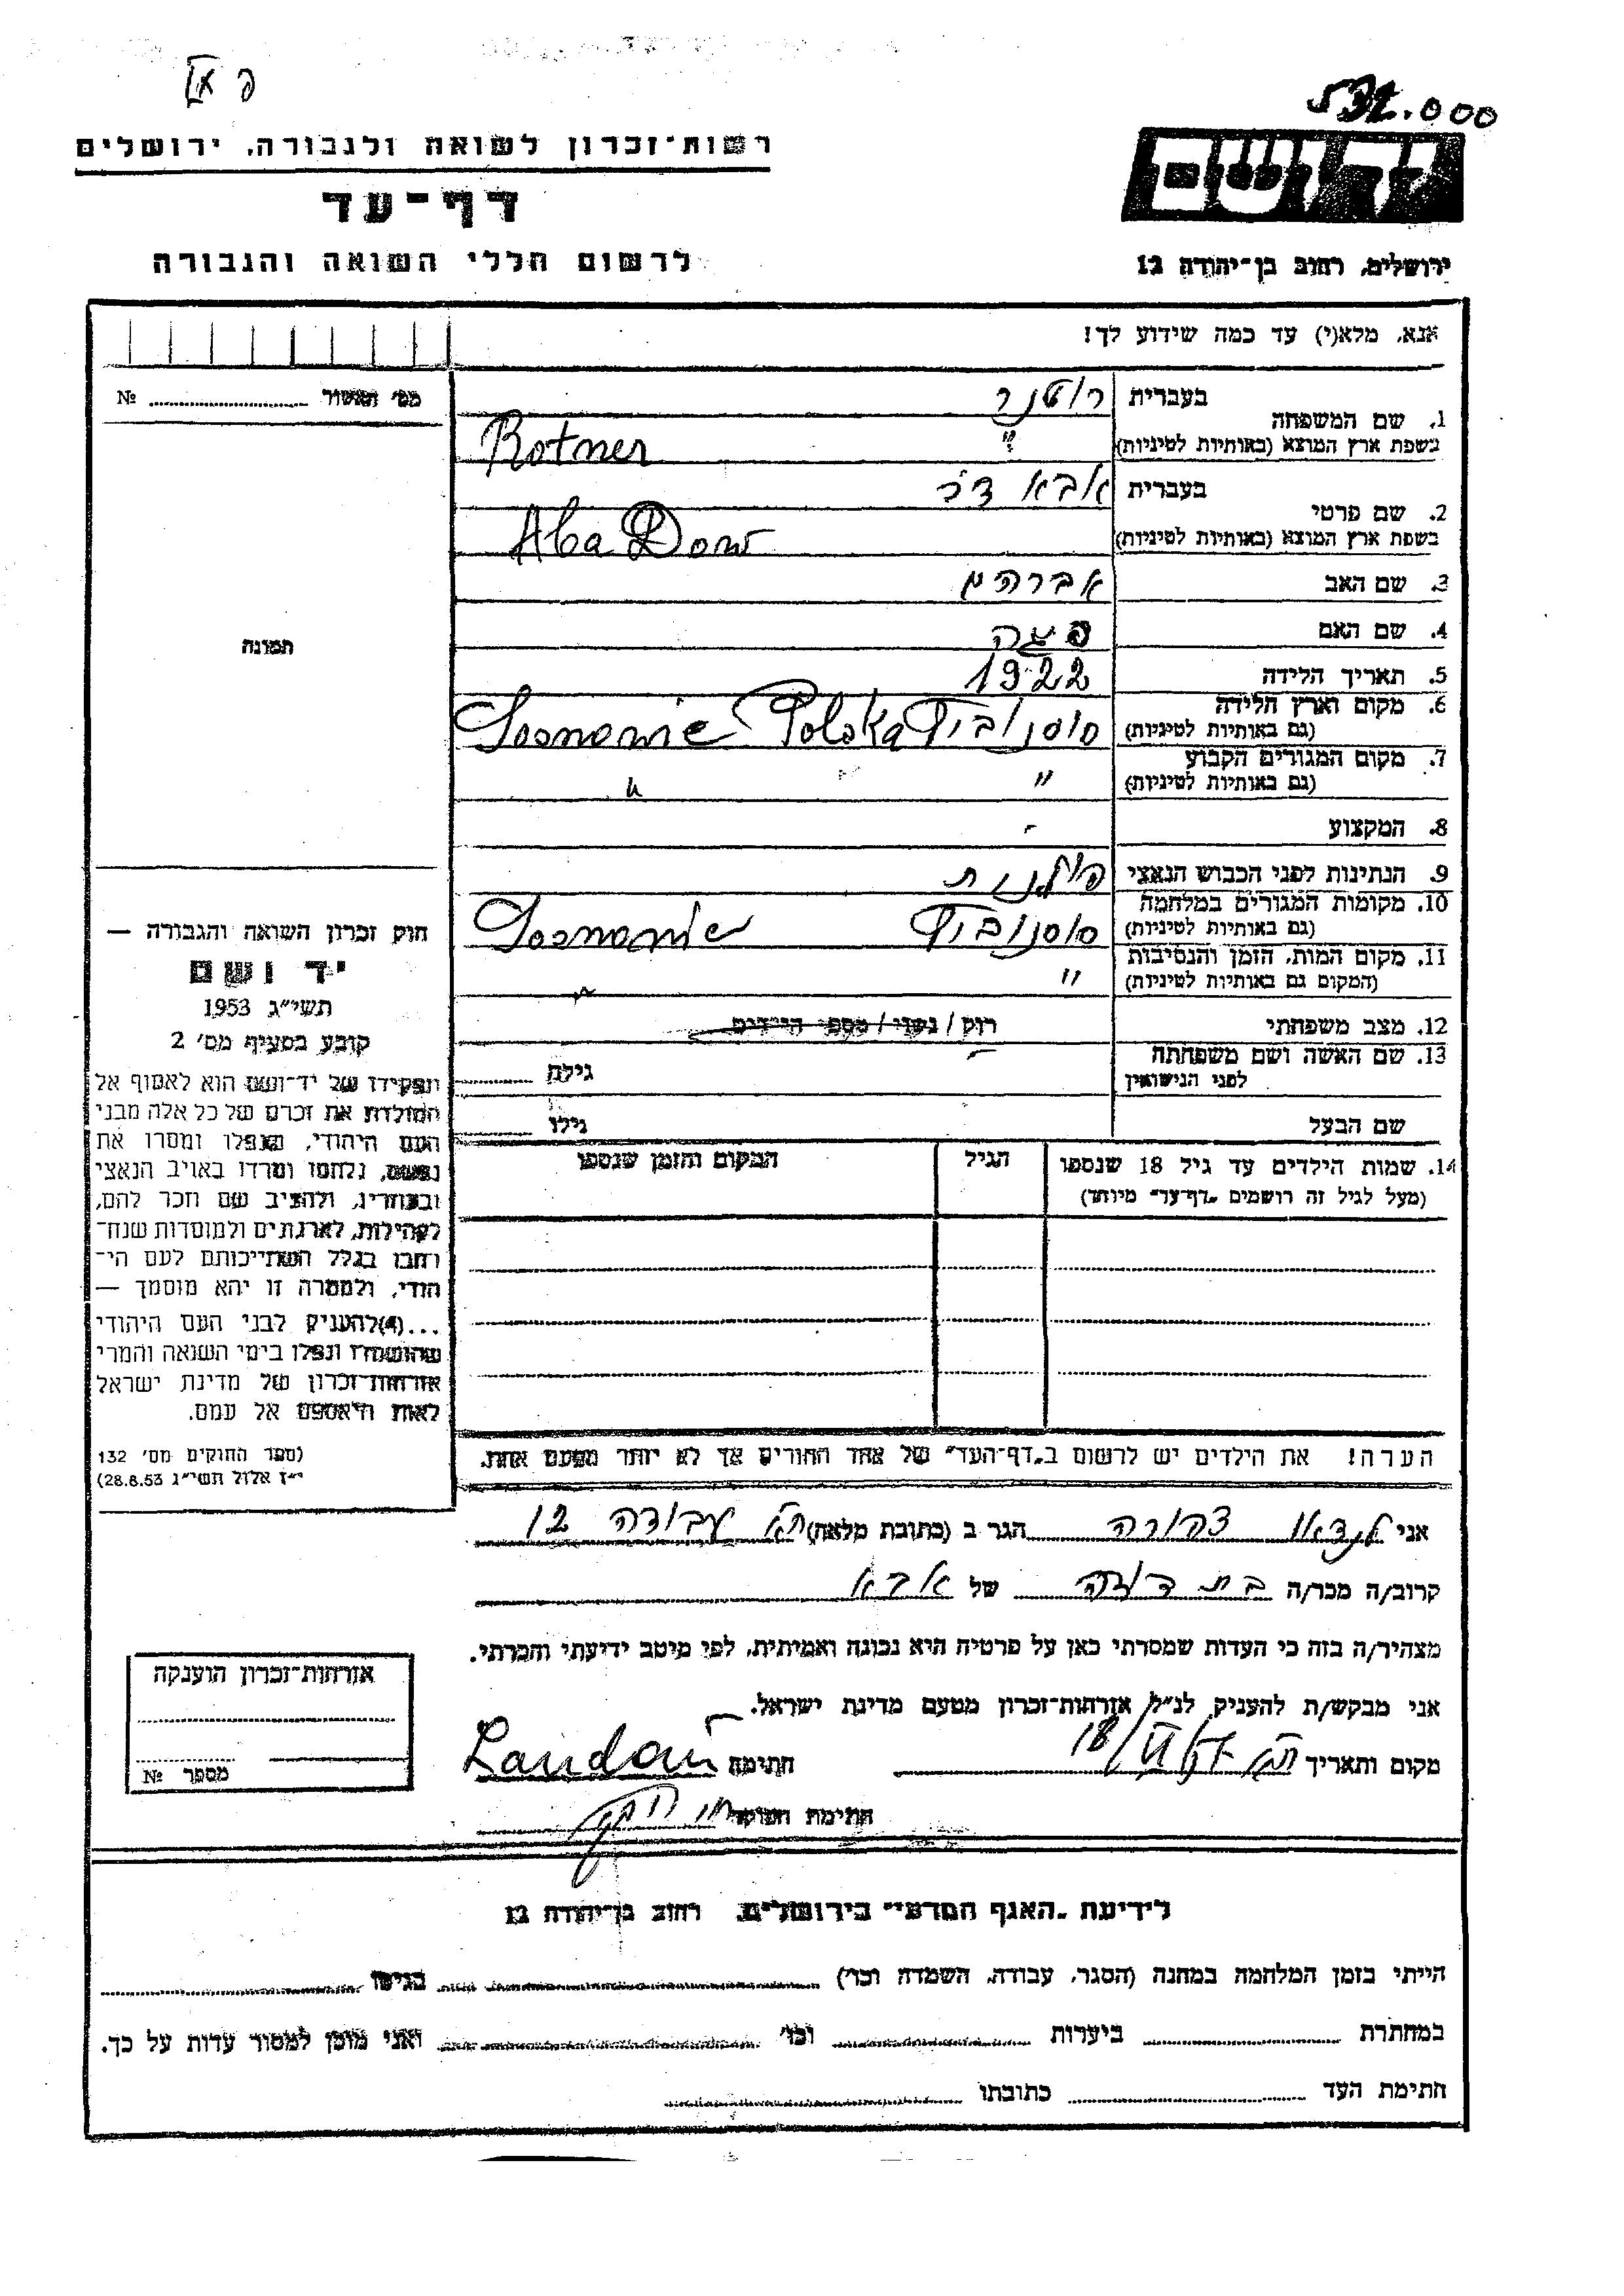 532.000
רשות-זכרון לשואה ולגבורה, ירושלים
דף-עד
לרשום חללי השואה והגבורה
ידושם
ירושלים, רחוב בן-יהודה 12
אנא, מלא(י) עד כמה שידוע לך!
מס' האשור № 
1. שם המשפחה
בעברית רוטנר
בשפת ארץ המוצא (באותיות לטיניות) " Rotner
2. שם פרטי
בעברית אבא דב
בשפת ארץ המוצא (באותיות לטיניות) Aba Dow
3. שם האב אברהם
4. שם האם
5. תאריך הלידה 1922
6. מקום וארץ הלידה
(גם באותיות לטיניות) סוסנוביץ Sosnowie Polska
7. מקום המגורים הקבוע
(גם באותיות לטיניות) " "
8. המקצוע -
9. הנתינות לפני הכבוש הנאצי פולנית
10. מקומות המגורים במלחמה
(גם באותיות לטיניות) סוסנוביץ Sosnowie
11. מקום המות, הזמן והנסיבות
(המקום גם באותיות לטיניות) " "
12. מצב משפחתי רוק / נשוי / מספר הילדים
13. שם האשה ושם משפחתה
לפני הנישואין - גילה
שם הבעל גילו
14. שמות הילדים עד גיל 18 שנספו
(מעל לגיל זה רושמים „דף-עד" מיוחד)
הגיל
המקום והזמן שנספו
הערה! את הילדים יש לרשום ב„דף-העד" של אחד ההורים אך לא יותר מפעם אחת.
תמונה
חוק זכרון השואה והגבורה —
יד ושם
תשי"ג 1953
קובע בסעיף מס' 2
תפקידו של יד-ושם הוא לאסוף אל
המולדת את זכרם של כל אלה מבני
העם היהודי, שנפלו ומסרו את
נפשם, נלחמו ומרדו באויב הנאצי
ובעוזריו, ולהציב שם וזכר להם,
לקהילות, לארגונים ולמוסדות שנח-
רבו בגלל השתייכותם לעם הי-
הודי, ולמטרה זו יהא מוסמך —
...(4) להעניק לבני העם היהודי
שהושמדו ונפלו בימי השואה והמרי
אזרחות-זכרון של מדינת ישראל
לאות היאספם אל עמם.
(ספר החוקים מס' 132
י"ז אלול תשי"ג 28.8.53)
אני לנדאו צפורה הגר ב (כתובת מלאה) ת"א עבודה 12
קרוב/ה מכר/ה בת דודה של אבא
מצהיר/ה בזה כי העדות שמסרתי כאן על פרטיה היא נכונה ואמיתית, לפי מיטב ידיעתי והכרתי.
אני מבקש/ת להעניק לנ"ל אזרחות-זכרון מטעם מדינת ישראל.
מקום ותאריך חתימה Landau
חתימת הפוקד
אזרחות-זכרון הוענקה
מספר №
לידיעת „האגף המדעי" בירושלים, רחוב בן-יהודה 12
הייתי בזמן המלחמה במחנה (הסגר, עבודה, השמדה וכו') בגיטו
במחתרת ביערות וכו' ואני מוכן למסור עדות על כך.
חתימת העד כתובתו